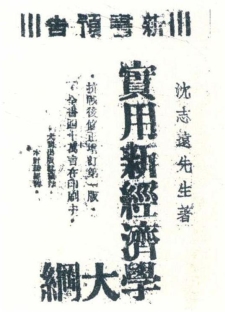 新書預告
沈志遠先生著
實用新經濟學
大綱
抗戰後修正增訂第一版
全書四十萬言在印刷中